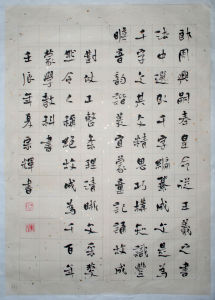 周興嗣奉皇命從王羲之書
法中選其千字編纂成文是為
千字文其文精思巧構知識豐
瞻音韻諧美宜蒙童記誦故成
對仗工整條理清晰文采斐
然令人絕故成為千百年
蒙學教科書
壬辰年夏宗輝書